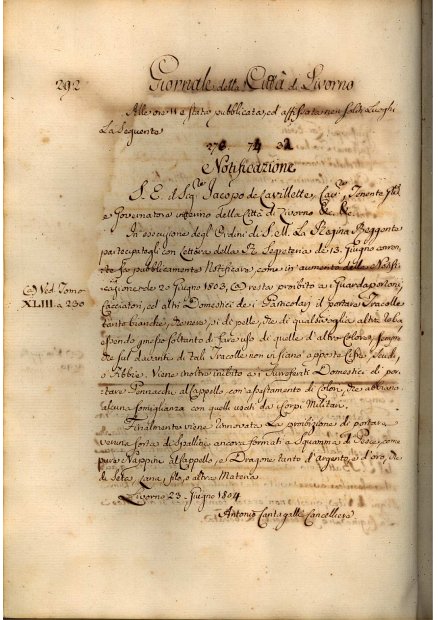 292 Giornale della Città di Livorno
Alle ore 11 è stata pubblicata, ed affissata nei soliti Luoghi
La Seguente
Notificazione
S. E. il Sig.re Jacopo de Lavillette, Cav.re, Tenente
e Governatore interino della Città di Livorno &c. &c.
In esecuzione degli Ordini di S. M. La Regina Reggente
partecipatogli con Lettera della R. Segreteria de 13. Giugno
fa pubblicamente Notificare, come in aumento della
de 20 Giugno 1803, resta proibito a i Guardaportoni,
(a) Ved. Tomo
XLIII. a 230
Cacciatori, ed altri Domestici de i Particolari il portare Tracolle
tanto bianche, che nere, o di pelle, che di qualsivoglia altra
essendo permesso soltanto di fare uso di quelle d'altro Colore,
che sul davanti di tali Tracolle non vi siano apposte Cifre, Scudi,
o Fibbie. Viene inoltre inibito a i suriferiti Domestici il
portare Pennacchi al Cappello, con assestamento di Colori, che abbiano
alcuna somiglianza con quelli usati da i Corpi Militari.
Finalmente viene rinnovata La proibizione di portare
veruna sorte di Spalline ancora formate a Squamma di Pesce, come
pure Nappine al Cappello, e Dragone tanto d'Argento, e d'oro, che
di Seta, Lana, filo, o altra Materia
Livorno 23. Giugno 1804
Antonio Cantagalli Cancelliere